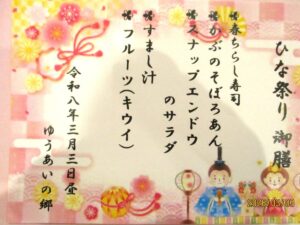 ひな祭り 御膳
春ちらし寿司
かぶのそぼろあん
スナップエンドウ
のサラダ
すまし汁
フルーツ(キウイ)
令和八年三月三日昼
ゆうあいの郷